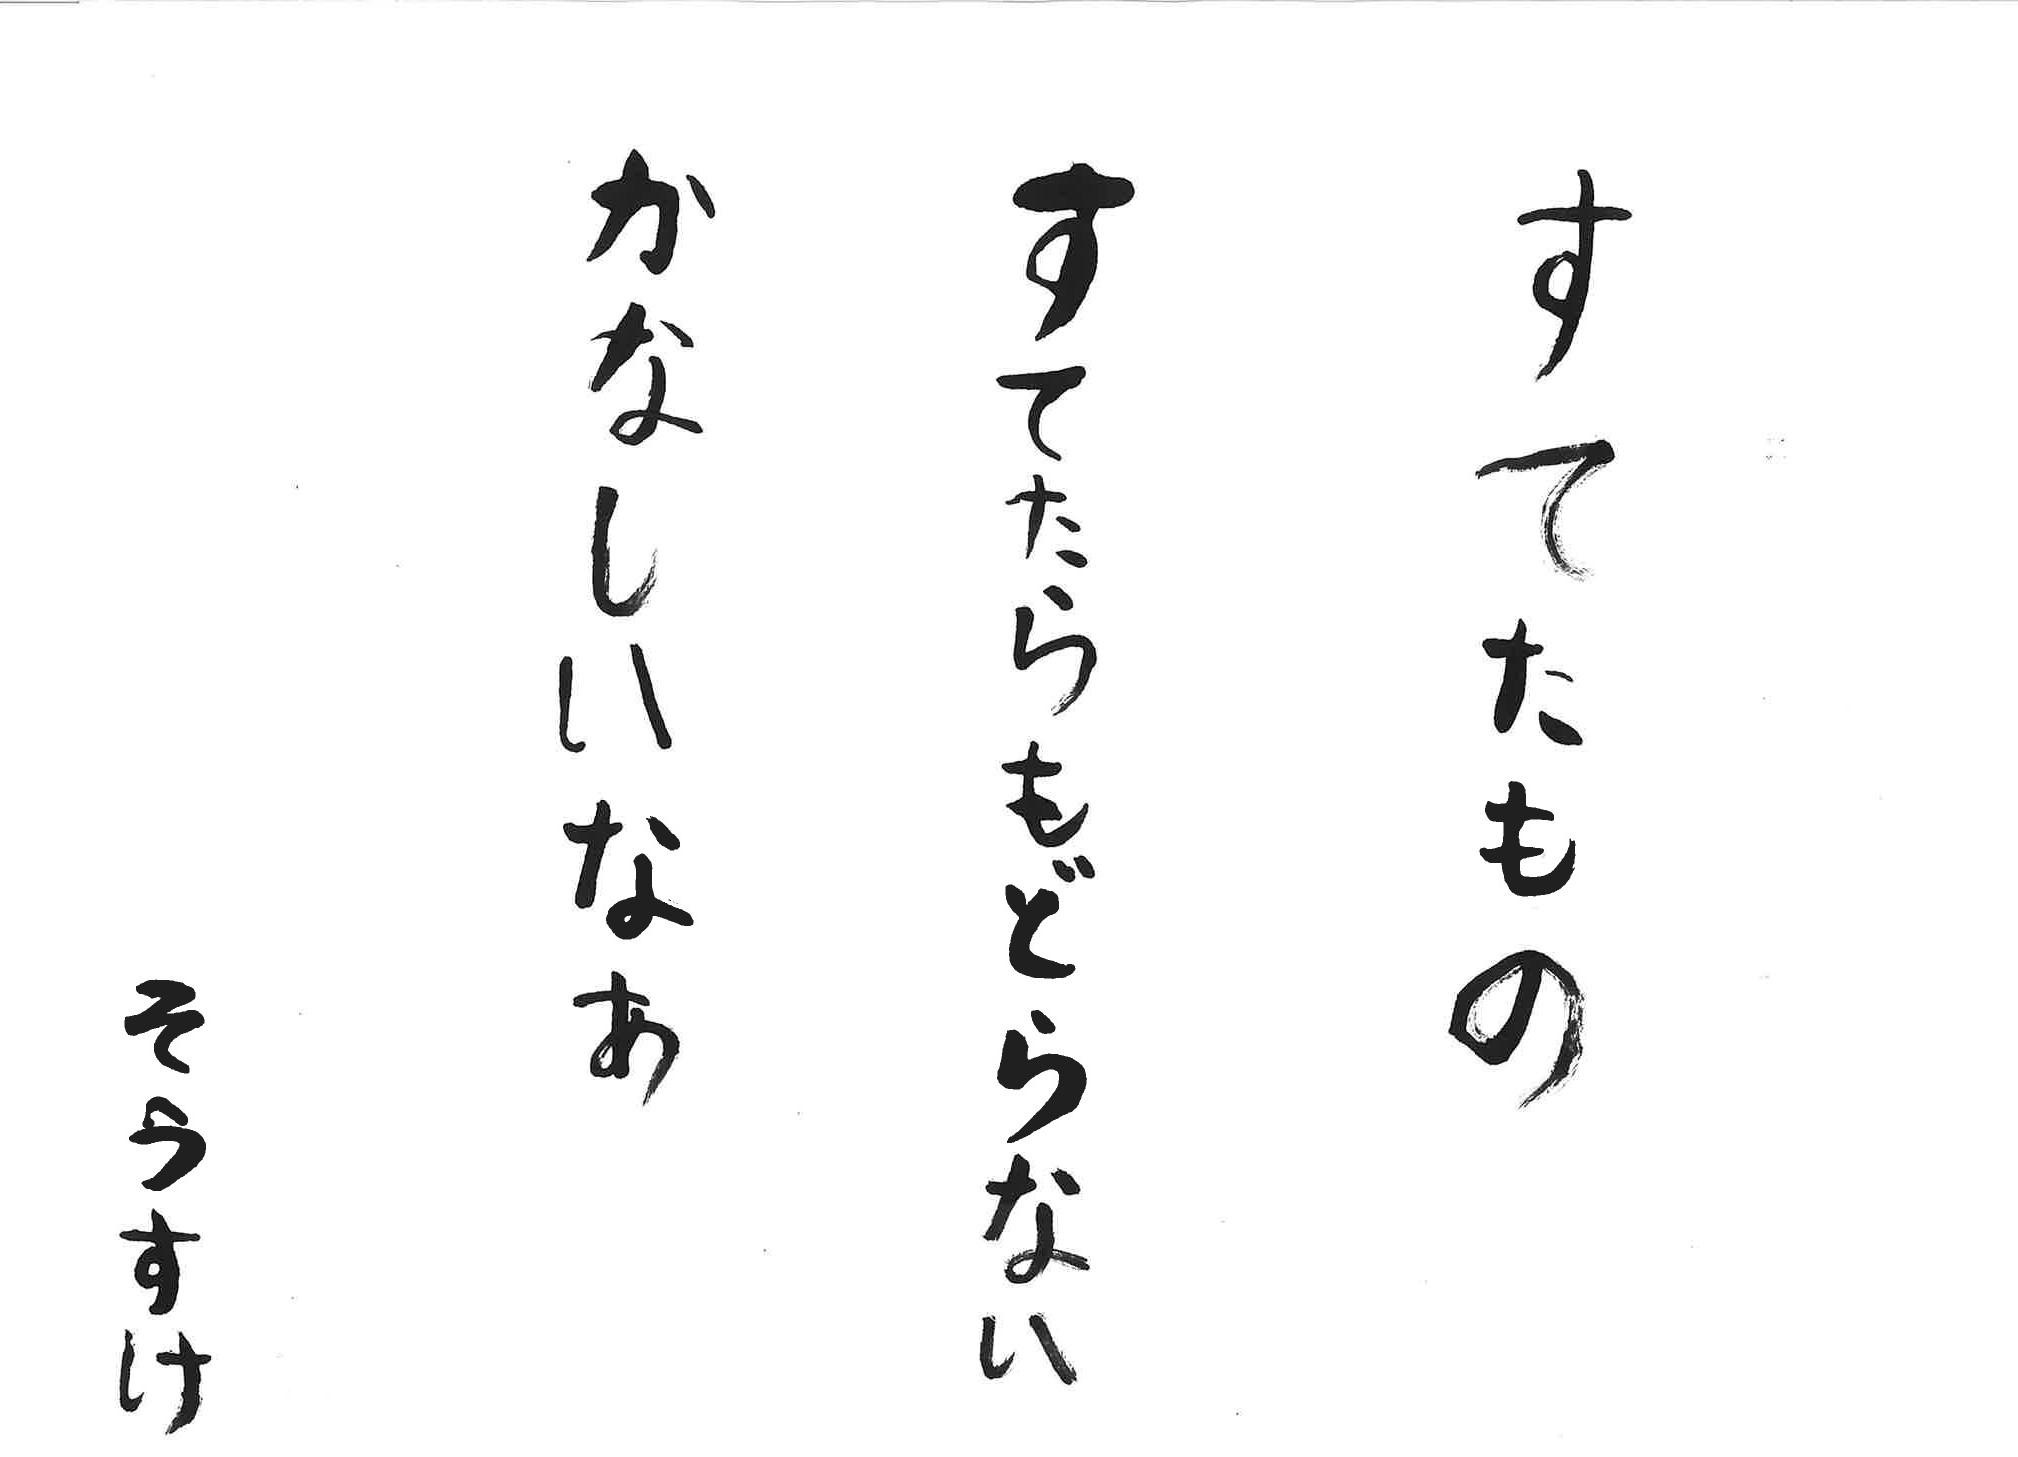 すてたもの
すてたらもどらない
かなしいなあ
そうすけ